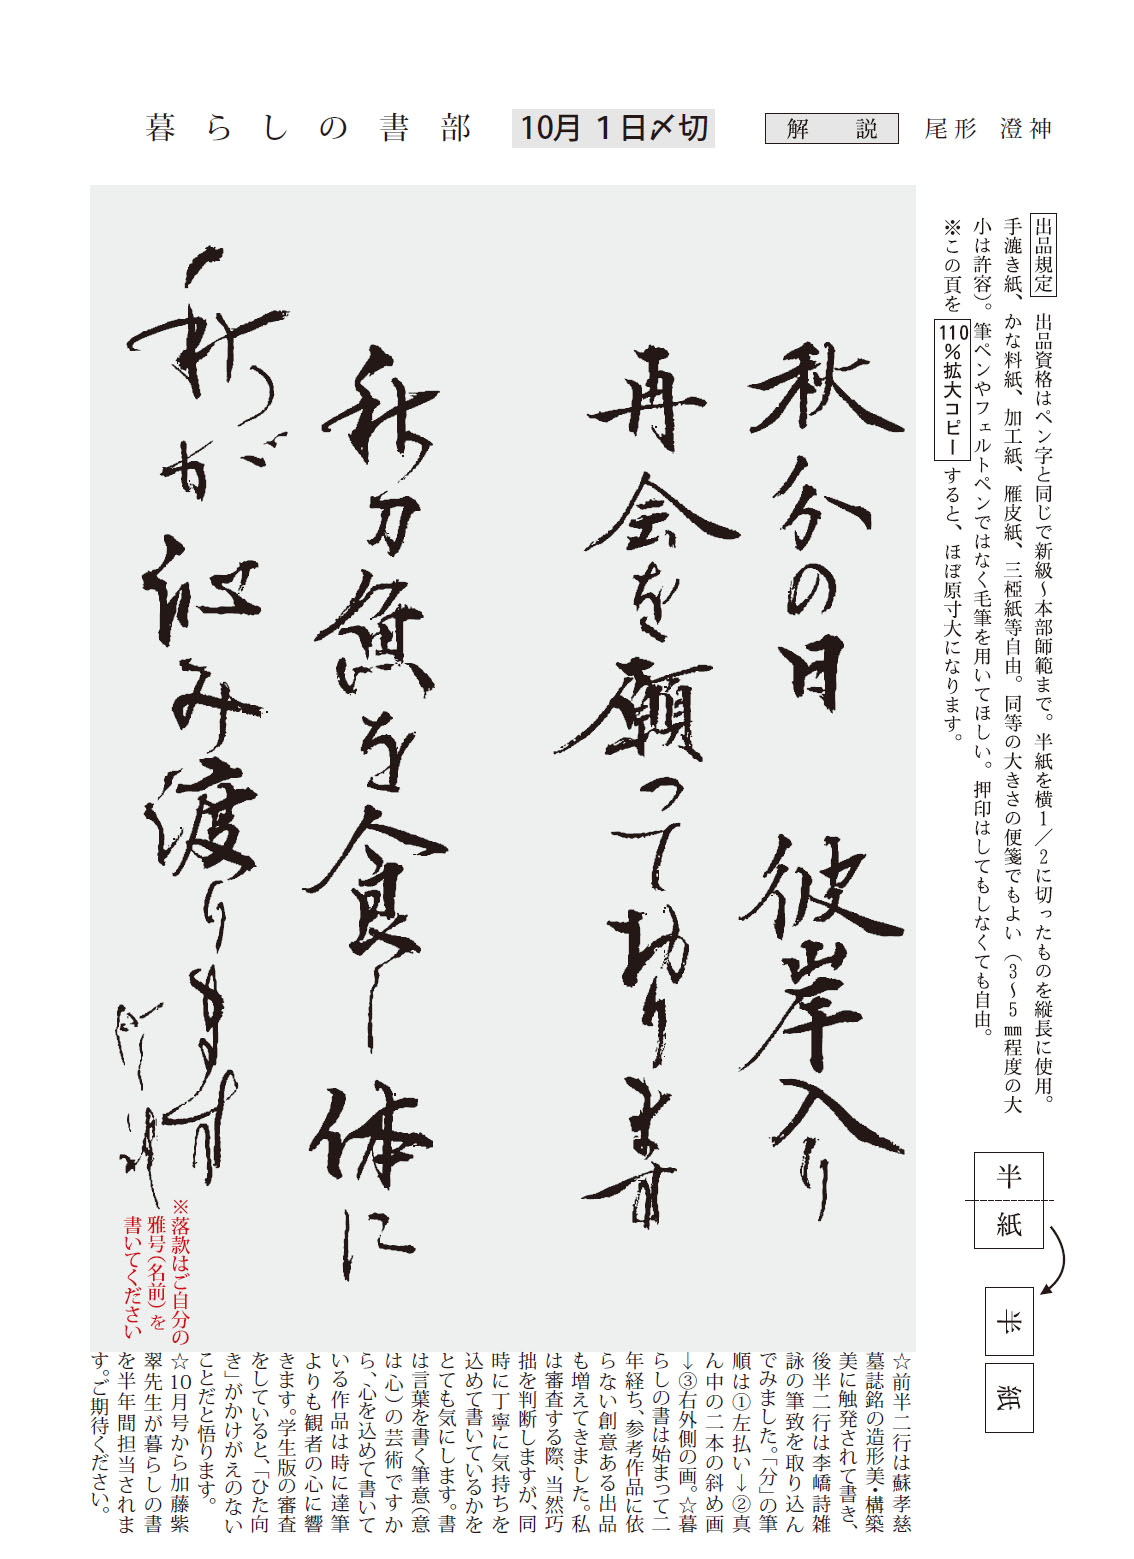 暮らしの書部
10月 1日〆切
解　説
尾形 澄神
出品規定 出品資格はペン字と同じで新級〜本部師範まで。半紙を横1／2に切ったものを縦長に使用。
手漉き紙、かな料紙、加工紙、雁皮紙、三椏紙等自由。同等の大きさの便箋でもよい（3〜5㎜程度の大
小は許容）。筆ペンやフェルトペンではなく毛筆を用いてほしい。押印はしてもしなくても自由。
※この頁を110％拡大コピーすると、ほぼ原寸大になります。
半紙
半紙
秋分の日 彼岸入り
再会を願って切ります
秋刀魚を食し 体に
秋が沁み渡ります
※落款はご自分の
雅号（名前）を
書いてください
☆前半二行は蘇孝慈
墓誌銘の造形美・構築
美に触発されて書き、
後半二行は李嶠詩雑
詠の筆致を取り込ん
でみました。「分」の筆
順は①左払い→②真
ん中の二本の斜め画
→③右外側の画。☆暮
らしの書は始まって二
年経ち、参考作品に依
らない創意ある出品
も増えてきました。私
は審査する際、当然巧
拙を判断しますが、同
時に丁寧に気持ちを
込めて書いているかを
とても気にします。書
は言葉を書く筆意（意
は心）の芸術ですか
ら、心を込めて書いて
いる作品は時に達筆
よりも観者の心に響
きます。学生版の審査
をしていると、「ひた向
き」がかけがえのない
ことだと悟ります。
☆10月号から加藤紫
翠先生が暮らしの書
を半年間担当されま
す。ご期待ください。